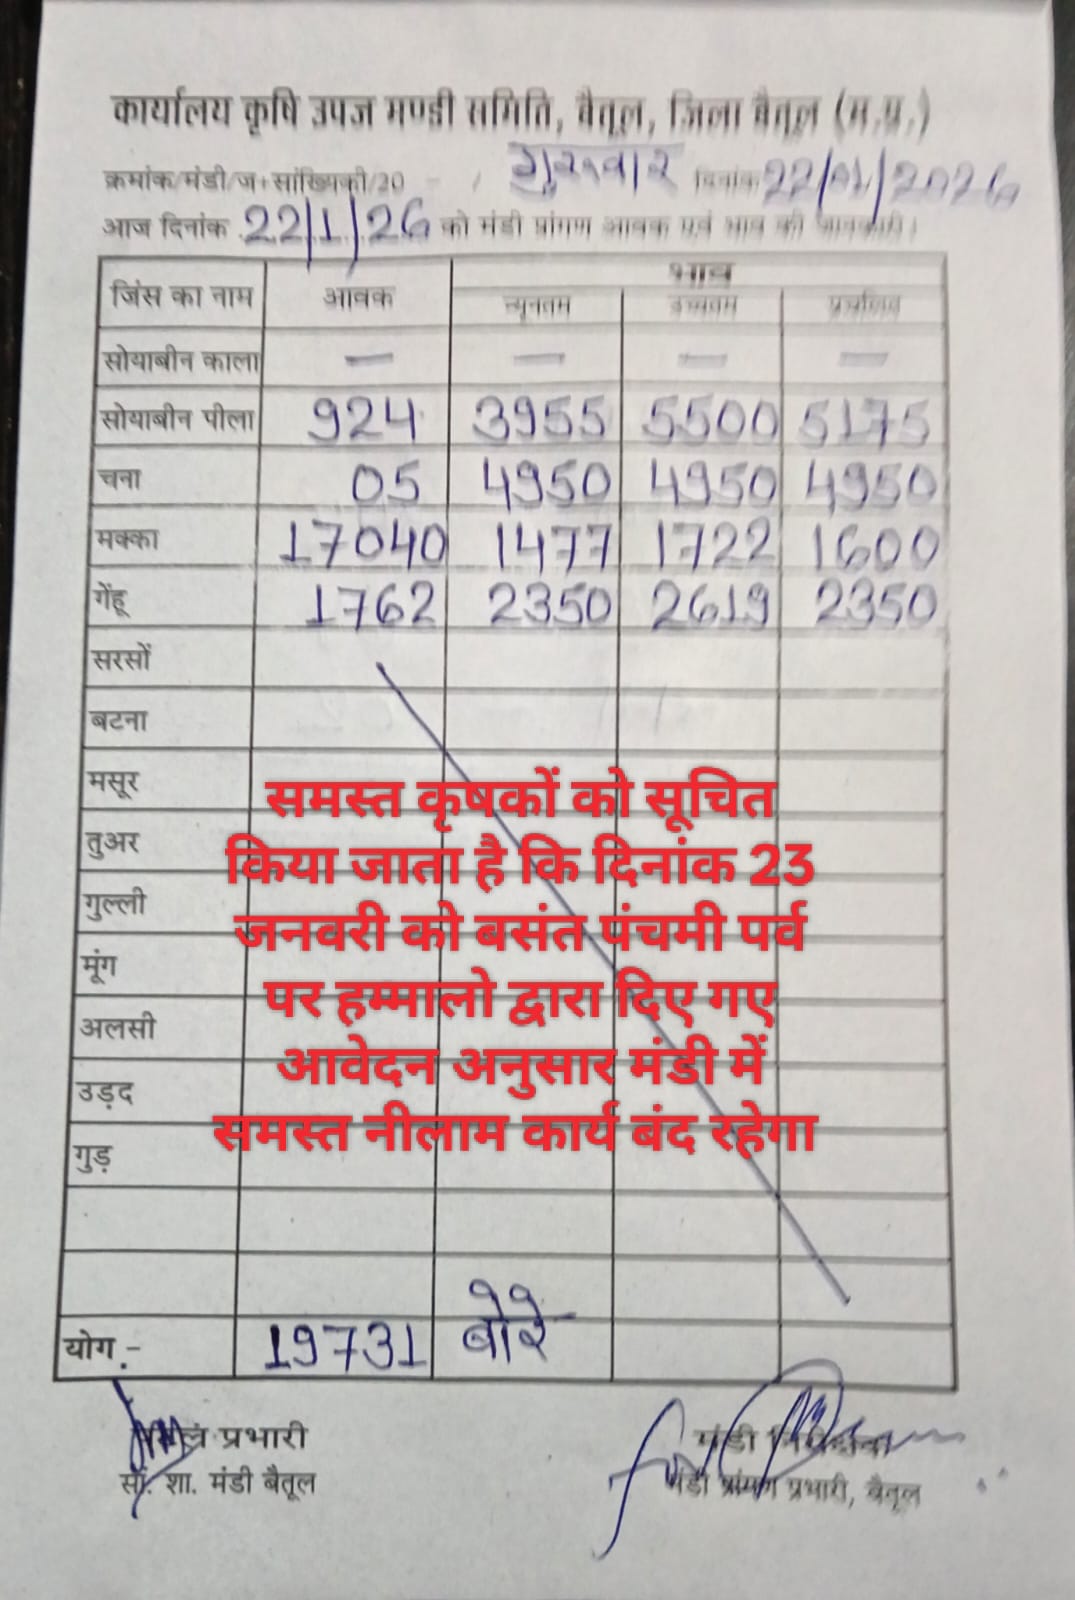 कार्यालय कृषि उपज मण्डी समिति, बैतूल, जिला बैतूल (म.प्र.)
क्रमांक/मंडी/ज+सांख्यिकी/20 - / गुरुवार दिनांक 22/01/2026
आज दिनांक 22/1/26 को मंडी प्रांगण आवक एवं भाव की जानकारी।
जिंस का नाम आवक भाव
न्यूनतम उच्चतम प्रचलित
सोयाबीन काला — — — —
सोयाबीन पीला 924 3955 5500 5175
चना 05 4950 4950 4950
मक्का 17040 1477 1722 1600
गेंहू 1762 2350 2619 2350
सरसों
बटना
मसूर
तुअर
गुल्ली
मूंग
अलसी
उड़द
गुड़
समस्त कृषकों को सूचित
किया जाता है कि दिनांक 23
जनवरी को बसंत पंचमी पर्व
पर हम्मालो द्वारा दिए गए
आवेदन अनुसार मंडी में
समस्त नीलाम कार्य बंद रहेगा
योग.- 19731 बोरे
प्रभारी मंडी
सां. शा. मंडी बैतूल मंडी प्रांगण प्रभारी, बैतूल